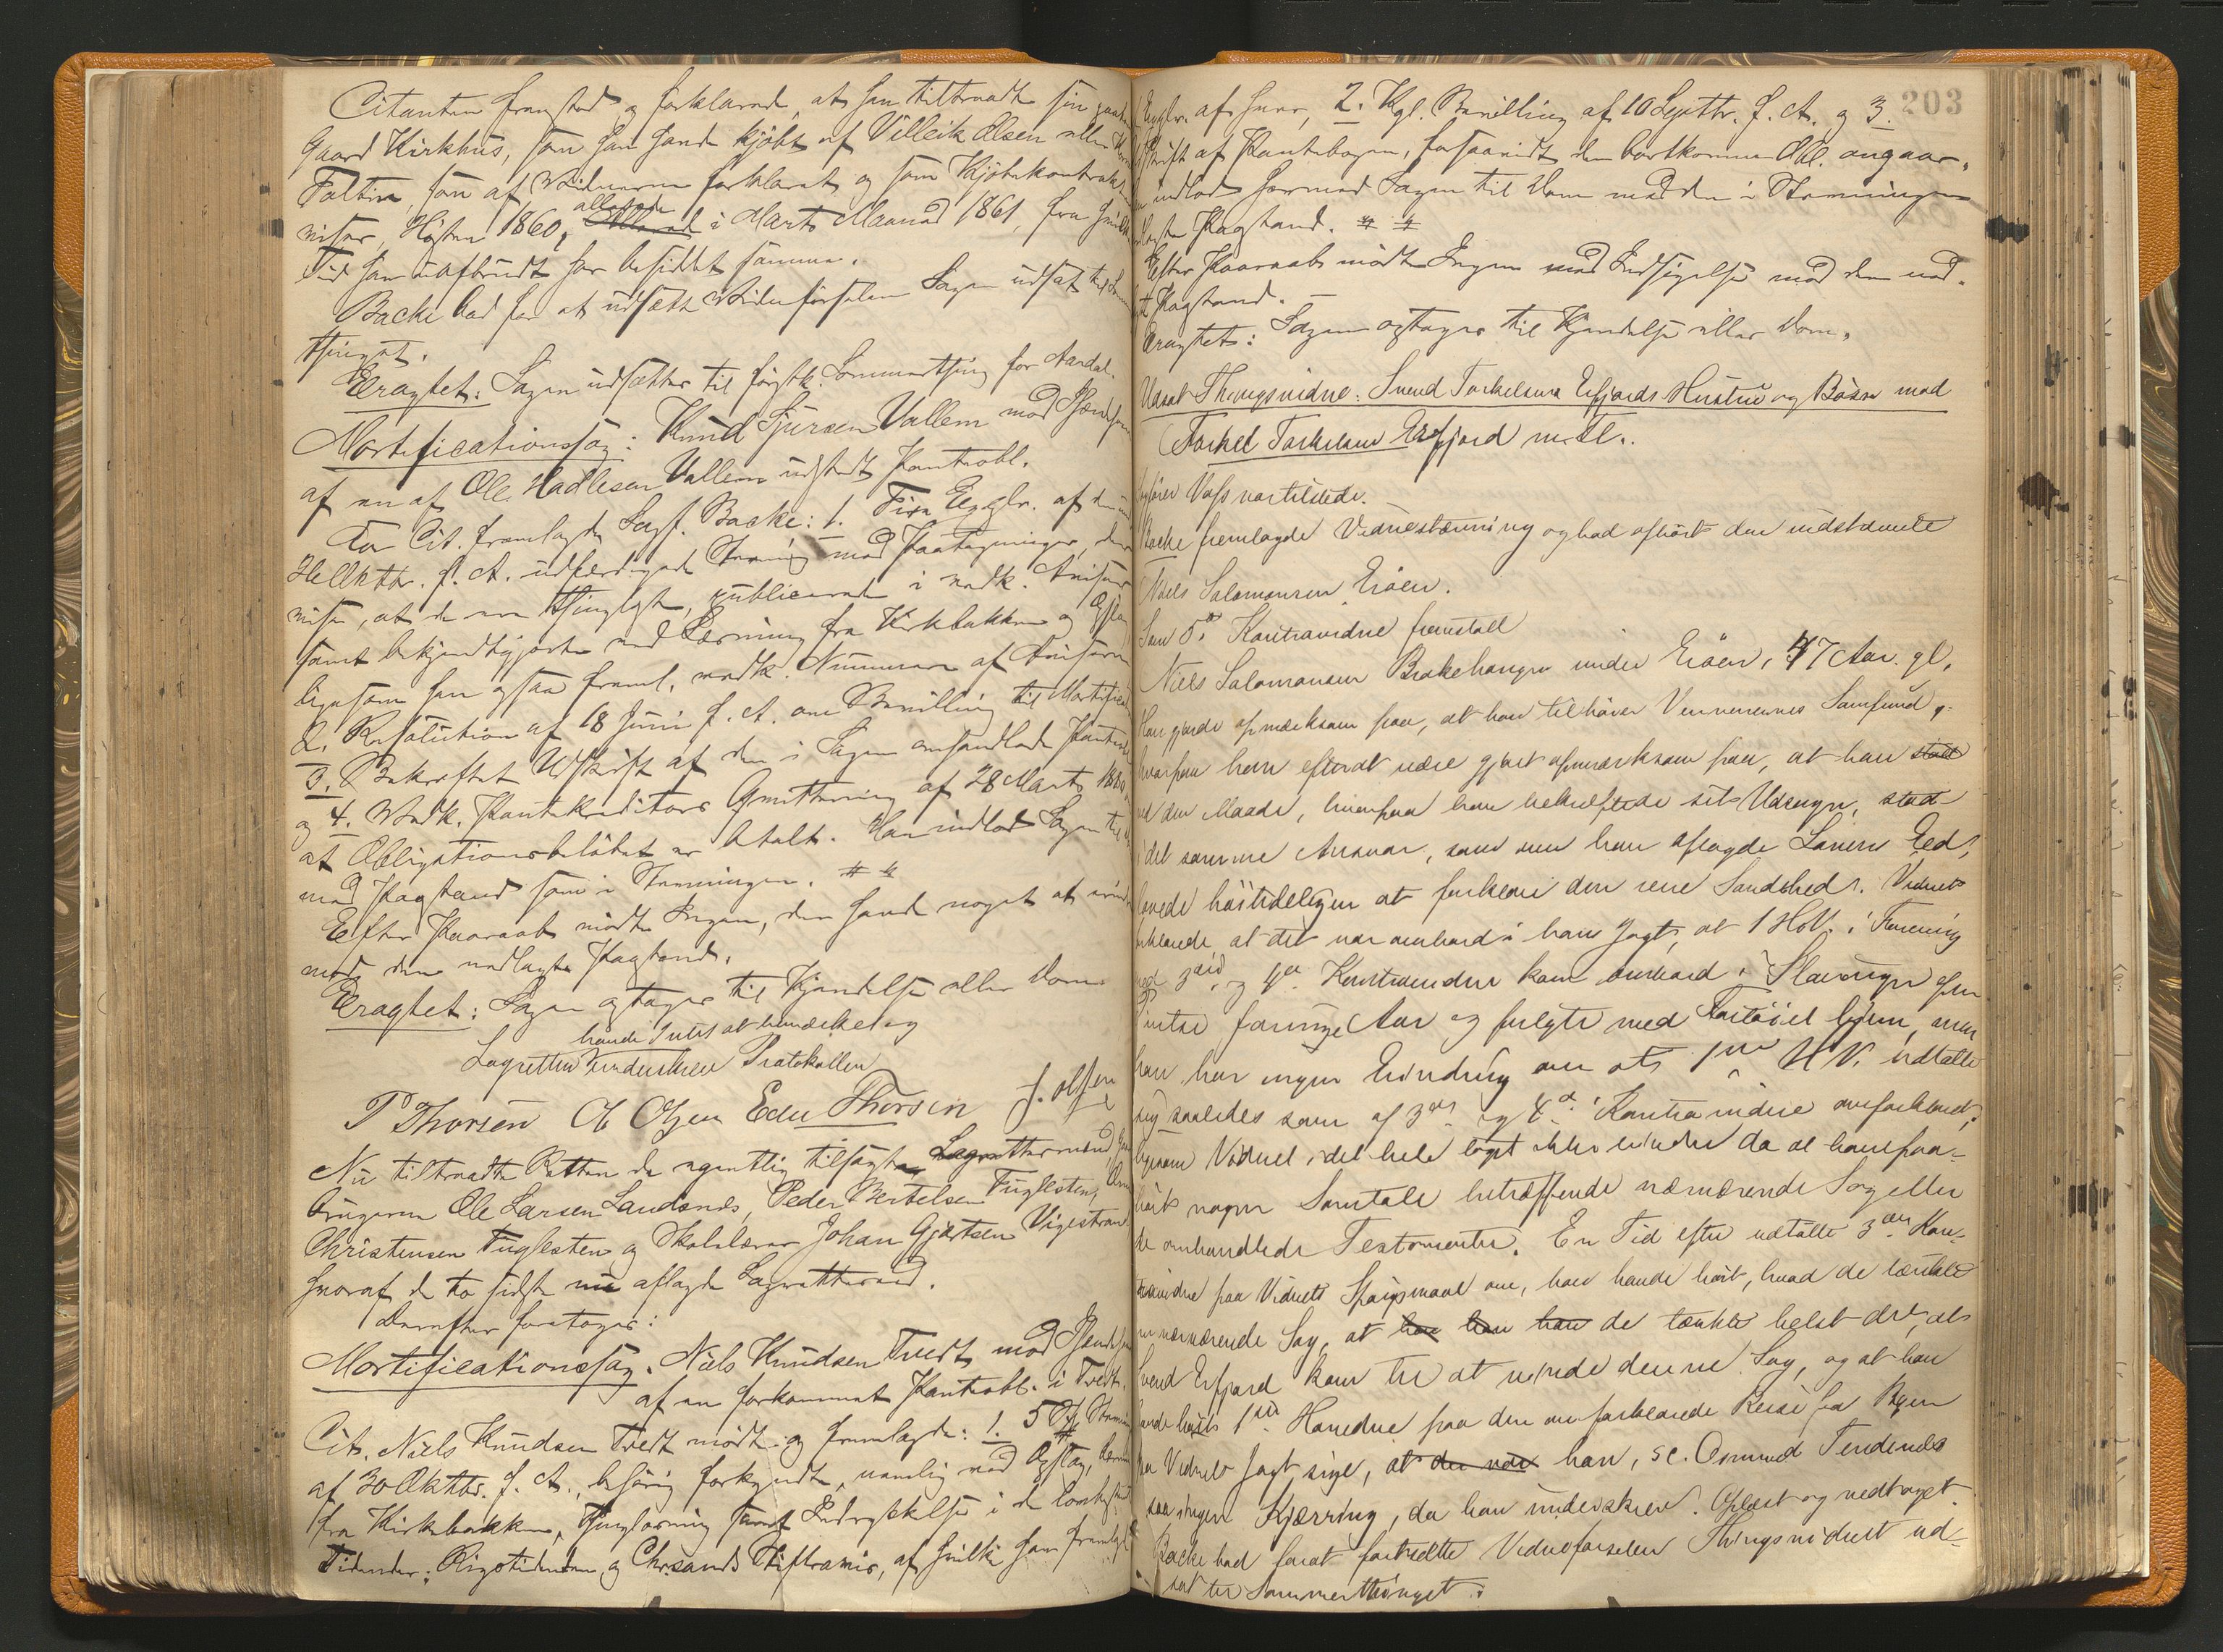 Citanten fremstod og forklarede, at han tiltraadte sin
Gaard Kirkhus, som han havde kjøbt af Villeik Olsen eller
Faltin, som af Vidnerne forklaret og som Kjøbekontrakten
viser, Høsten 1860, allerede i Marts Maaned 1861, fra hvilken
Tid han uafbrudt har besiddet samme.
Backe bad for at udsætte Vidneførselen Sagen udsat til Sommer
thinget.
Eragtet: Sagen udsættes til førstk. Sommerthing for Aardal.
Mortificationssag: Knud Sjursen Vallem mod Ihændehaveren
af en af Ole Hadlesen Vallem udstedt Pantobl.
For Cit. fremlagde Sagf. Backe: 1. Fire Exeplr. af den under
Oktbr. f. A. udfærdigede Stævning med Paategninger, der
viser, at de ere thinglyst, publicerede i vedk. Aviser
samt bekjendtgjorte ved Læsning fra Kirkbakken og Opslag
ligesom han ogsaa freml. vedk. Nummere af Aviserne
2. Resolution af 18 Juni f. A. om Bevilling til Mortifica
3. Bekræftet Udskrift af den i Sagen omhandlede Pantobl.
og 4. Vedk. Pantekreditors Qvittering af 28 Marts 1880
at Obligationsbeløbet er betalt. Han indlod Sagen til
med Paastand som i Stævningen.
Efter Paaraab mødte Ingen, der havde noget at erindre
mod den nedlagte Paastand.
Eragtet: Sagen optages til Kjendelse eller Dom.
havde Intet at bemærke og
Lagretten underskrev Protokollen
P Thorsen O Olsen Eder Thorsen J. Olsen
Nu tiltraadte Retten de egentlig tilsagte Lagrettesmænd,
brugerne Ole Larsen Landsnes, Peder Bertelsen Fuglesten,
Christensen Fuglesten og Skolelærer Johan Gjertsen Vigestran
hvoraf de to sidste nu aflagde Lagretteseed.
Derefter foretoges:
Mortificationssag. Niels Knudsen Tvedt mod Ihændeha
af en forkommet Pantobl. i Tvedt.
Cit. Niels Knudsen Tvedt mødte og fremlagde: 1. 5
af 30 Oktbr. f. A., behørig forkyndt, nemlig ved Opslag,
fra Kirkbakken, Thinglæsning samt Indrykkelse i de
Tidender: Rigstidenden og Chrsands Stiftsavis, af hvilke han fremlagde
203
Exeplr. af hver, 2. Kgl. Bevilling af 10 Septbr. f. A. og 3.
skrift af Pantebogen, forsaavidt den bortkomne Obl. angaar,
indlod hermed Sagen til Dom med den i Stævningen
Paastand.
Efter Paaraab mødte Ingen med Indsigelse mod den ned-
Paastand.
Eragtet: Sagen optages til Kjendelse eller Dom.
Udsat Thingsvidne: Svend Torkelsens Erfjords Hustru og Børn mod
Torkel Torkelsen Erfjord m. Fl.
Vass var tilstede.
Backe fremlagde Vidnestævning og bad afhørt den indstævnte
Niels Salomonsen Eröen.
Som 5te Kontravidne fremstod
Niels Salomonsen Brakehaugen under Eröen, 47 Aar gl.
Han gjorde opmærksom paa, at han tilhører Vennernes Samfund,
hvorpaa han efterat være gjort opmærksom paa, at han stod
ved den Maade, hvorpaa han bekræftede sit Udsagn, stod
i det samme Ansvar, som om han aflagde Lovens Eed,
lovede høitideligen at forklare den rene Sandhed. Vidnet
forklarede, at det var ombord i hans Jagt, at 1 HoV. i Forening
med 3die og 4de Kontravidne kom ombord i Stavanger
Vinter forrige Aar og fulgte med Fartøiet hjem, men
han har ingen Erindring om at 1ste H.V. udtalte
sig saaledes som af 3die og 4de Kontravidne omforklaret,
ligesom Vidnet i det hele taget ikke erindrer da at have paa-
hørt nogen Samtale betræffende nærværende Sag eller
de omhandlede Testamenter. En Tid efter udtalte 3die Kon-
travidne paa Vidnets Spørgsmaal om, han havde hørt, hvad de tænkte
om nærværende Sag, at han han han de tænkte helst det, at
Svend Erfjord kom til at vinde denne Sag, og at han
havde hørt 1ste Hovedvidne paa den omforklarede Reise fra Byen
paa Vidnets Jagt sige, at der var han, sc. Osmund Tendenes
saa ingen Kjærring, da han underskrev. Oplæst og vedtaget.
Backe bad forat fortsætte Vidneførselen Thingsvidnet ud-
sat til Sommerthinget.